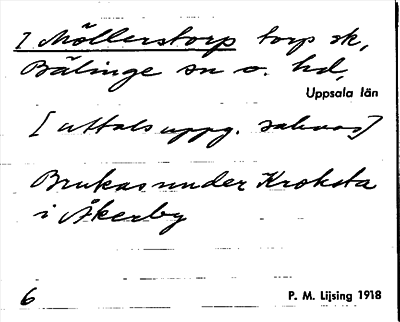 1 Möllerstorp torp sk,
Bälinge sn o. hd,
Uppsala län
[uttalsuppg. saknas]
Brukas under Kroksta
i Åkerby
6
P. M. Lijsing 1918